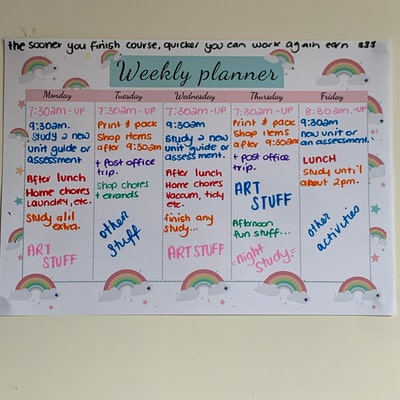 the sooner you finish course, quicker you can work again earn $$$
Weekly planner
Monday
7:30am - UP
9:30am.
Study a new
unit guide or
assessment.
After lunch
Home chores
Laundry, etc.
Study a lil
extra.
ART
STUFF
Tuesday
7:30am - UP
Print & pack
Shop items
after 9:30am
+ Post office
trip.
Shop chores
+ errands
other
stuff
Wednesday
7:30am - UP
9:30am
Study a new
unit guide or
assessment.
After lunch
Home chores
Vaccum, tidy
etc.
finish any
study...
ART STUFF
Thursday
7:30am - UP
Print & pack
Shop items
after 9:30am
+ post office
trip.
ART
STUFF
Afternoon
fun stuff...
-night
study=
Friday
8:30am - UP
9:30am
new unit or
an assessment.
LUNCH
Study until
about 2pm.
other
activities